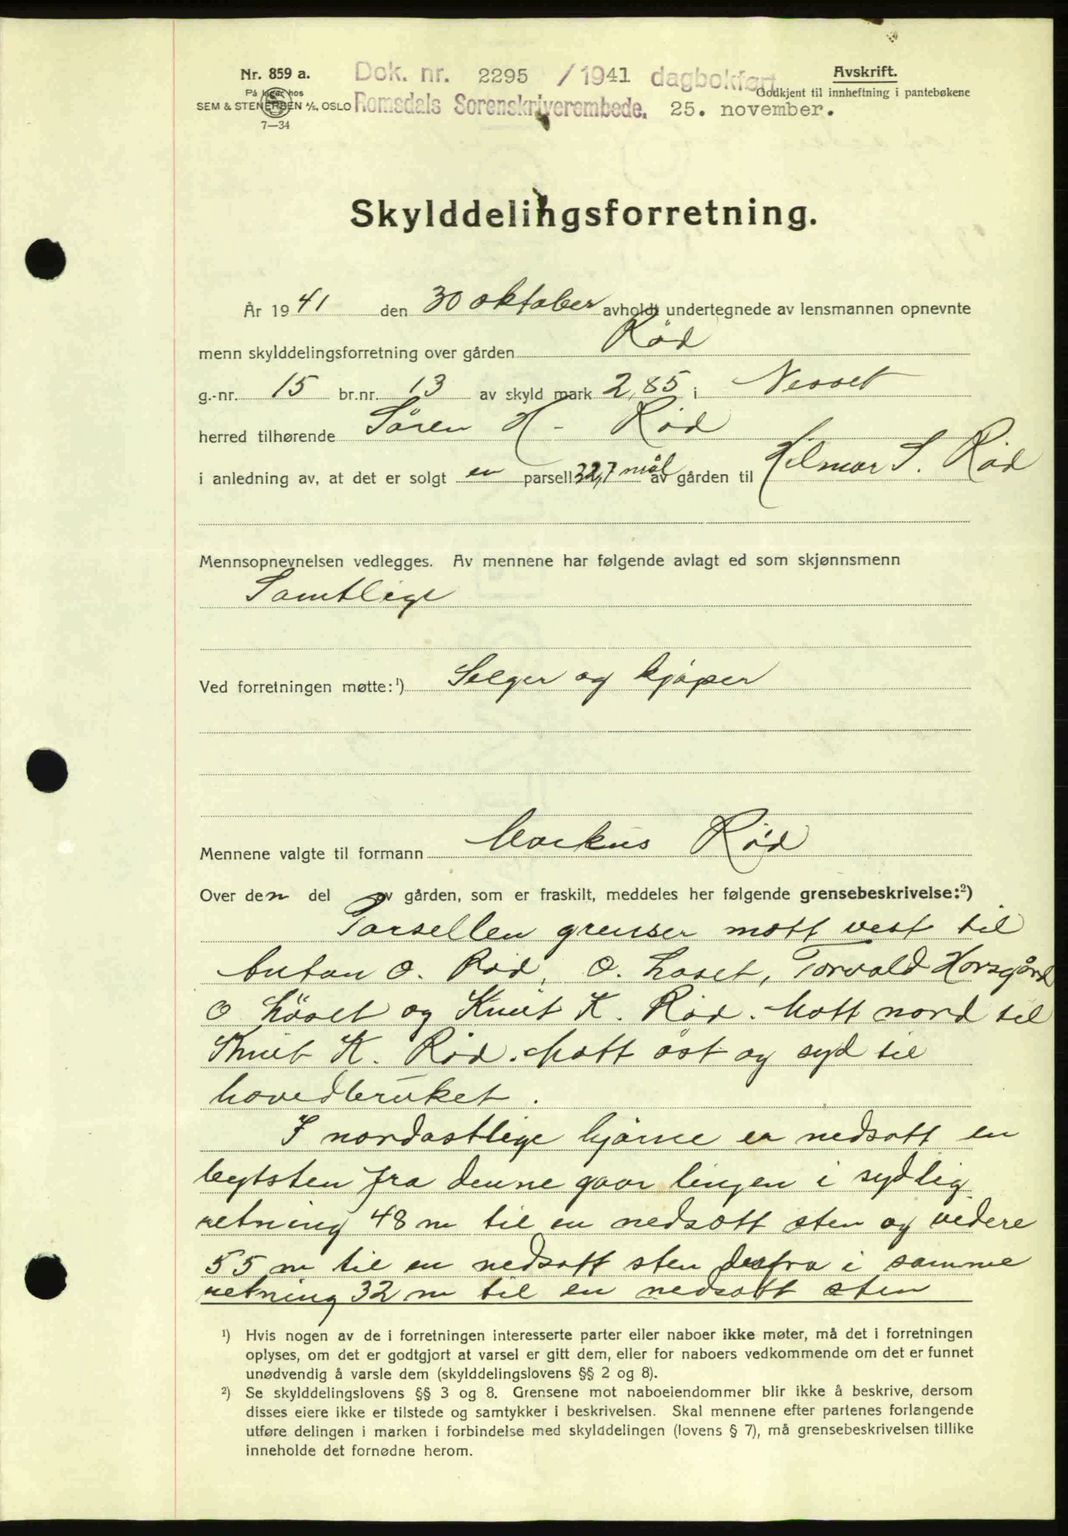 Nr. 859 a.
På lager hos
SEM & STENERSEN A/S, OSLO
7—34
Dok. nr. 2295 / 1941 dagbokført
Romsdals Sorenskriverembede. 25. november.
Avskrift.
Godkjent til innheftning i pantebøkene
Skylddelingsforretning.
År 1941 den 30 oktober avholdt undertegnede av lensmannen opnevnte
menn skylddelingsforretning over gården Rød
g.-nr. 15 br.nr. 13 av skyld mark 2,85 i Nesset
herred tilhørende Søren H. Rød
i anledning av, at det er solgt en parsell 32,7 mål av gården til Hilmar S. Rød
Mennsopnevnelsen vedlegges. Av mennene har følgende avlagt ed som skjønnsmenn
Samtlige
Ved forretningen møtte:¹) Selger og kjøper
Mennene valgte til formann Markus Rød
Over den del av gården, som er fraskilt, meddeles her følgende grensebeskrivelse:²)
Parsellen grenser mott vest til
Anton O. Rød, O. Löset, Torvald Horsgård
O Löset og Knut K. Rød. Mott nord til
Knut K. Rød. Mott öst og syd til
hovedbruket.
I nordöstlige hjörne er nedsatt en
bytsten fra denne gaar linjen i sydlig
retning 48 m til en nedsatt sten og videre
55 m til en nedsatt sten derfra i samme
retning 32 m til en nedsatt sten
¹) Hvis nogen av de i forretningen interesserte parter eller naboer ikke møter, må det i forretningen
oplyses, om det er godtgjort at varsel er gitt dem, eller for naboers vedkommende om det er funnet
unødvendig å varsle dem (skylddelingslovens §§ 2 og 8).
²) Se skylddelingslovens §§ 3 og 8. Grensene mot naboeiendommer blir ikke å beskrive, dersom
disses eiere ikke er tilstede og samtykker i beskrivelsen. Skal mennene efter partenes forlangende
utføre delingen i marken i forbindelse med skylddelingen (lovens § 7), må grensebeskrivelsen tillike
inneholde det fornødne herom.